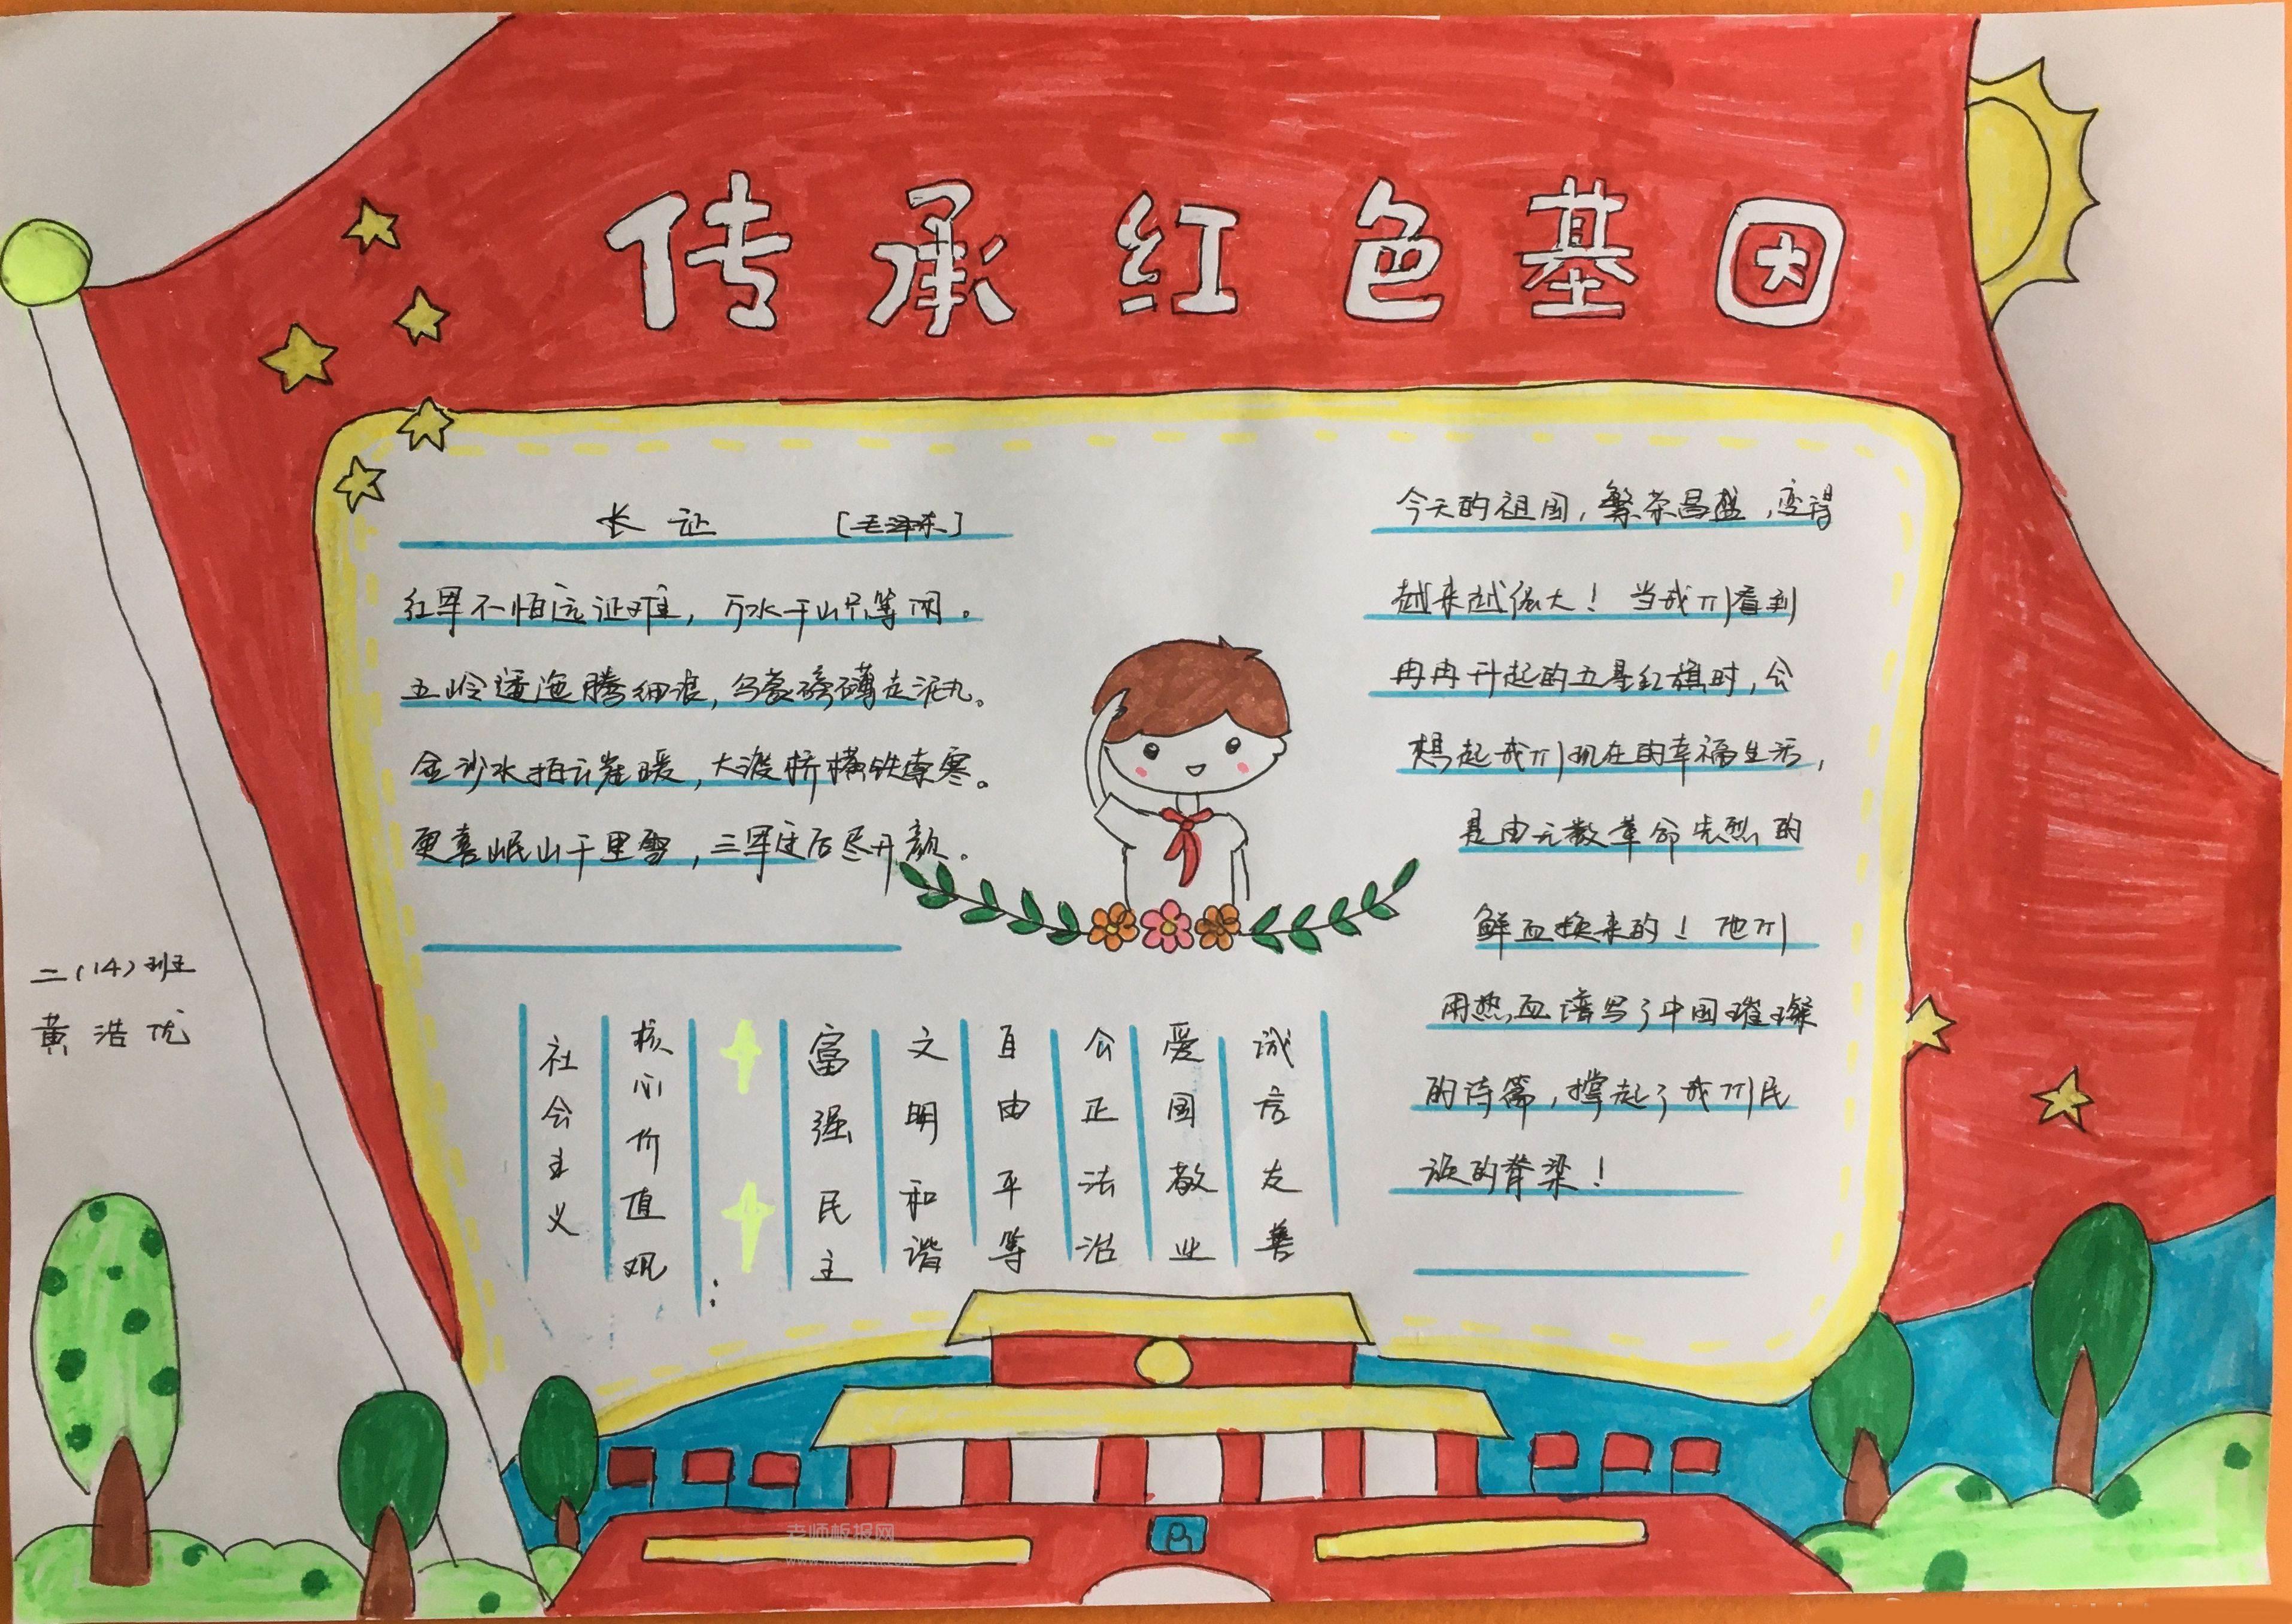 传承红色基因
长征 [毛泽东]
红军不怕远征难，万水千山只等闲。
五岭逶迤腾细浪，乌蒙磅礴走泥丸。
金沙水拍云崖暖，大渡桥横铁索寒。
更喜岷山千里雪，三军过后尽开颜。
今天的祖国，繁荣昌盛，变得
越来越强大！当我们看到
冉冉升起的五星红旗时，会
想起我们现在的幸福生活，
是由无数革命先烈的
鲜血换来的！他们
用热血谱写了中国璀璨
的诗篇，撑起了我们民
族的脊梁！
社会主义
核心价值观：
富强民主
文明和谐
自由平等
公正法治
爱国敬业
诚信友善
二（14）班
黄浩优
老师板报网